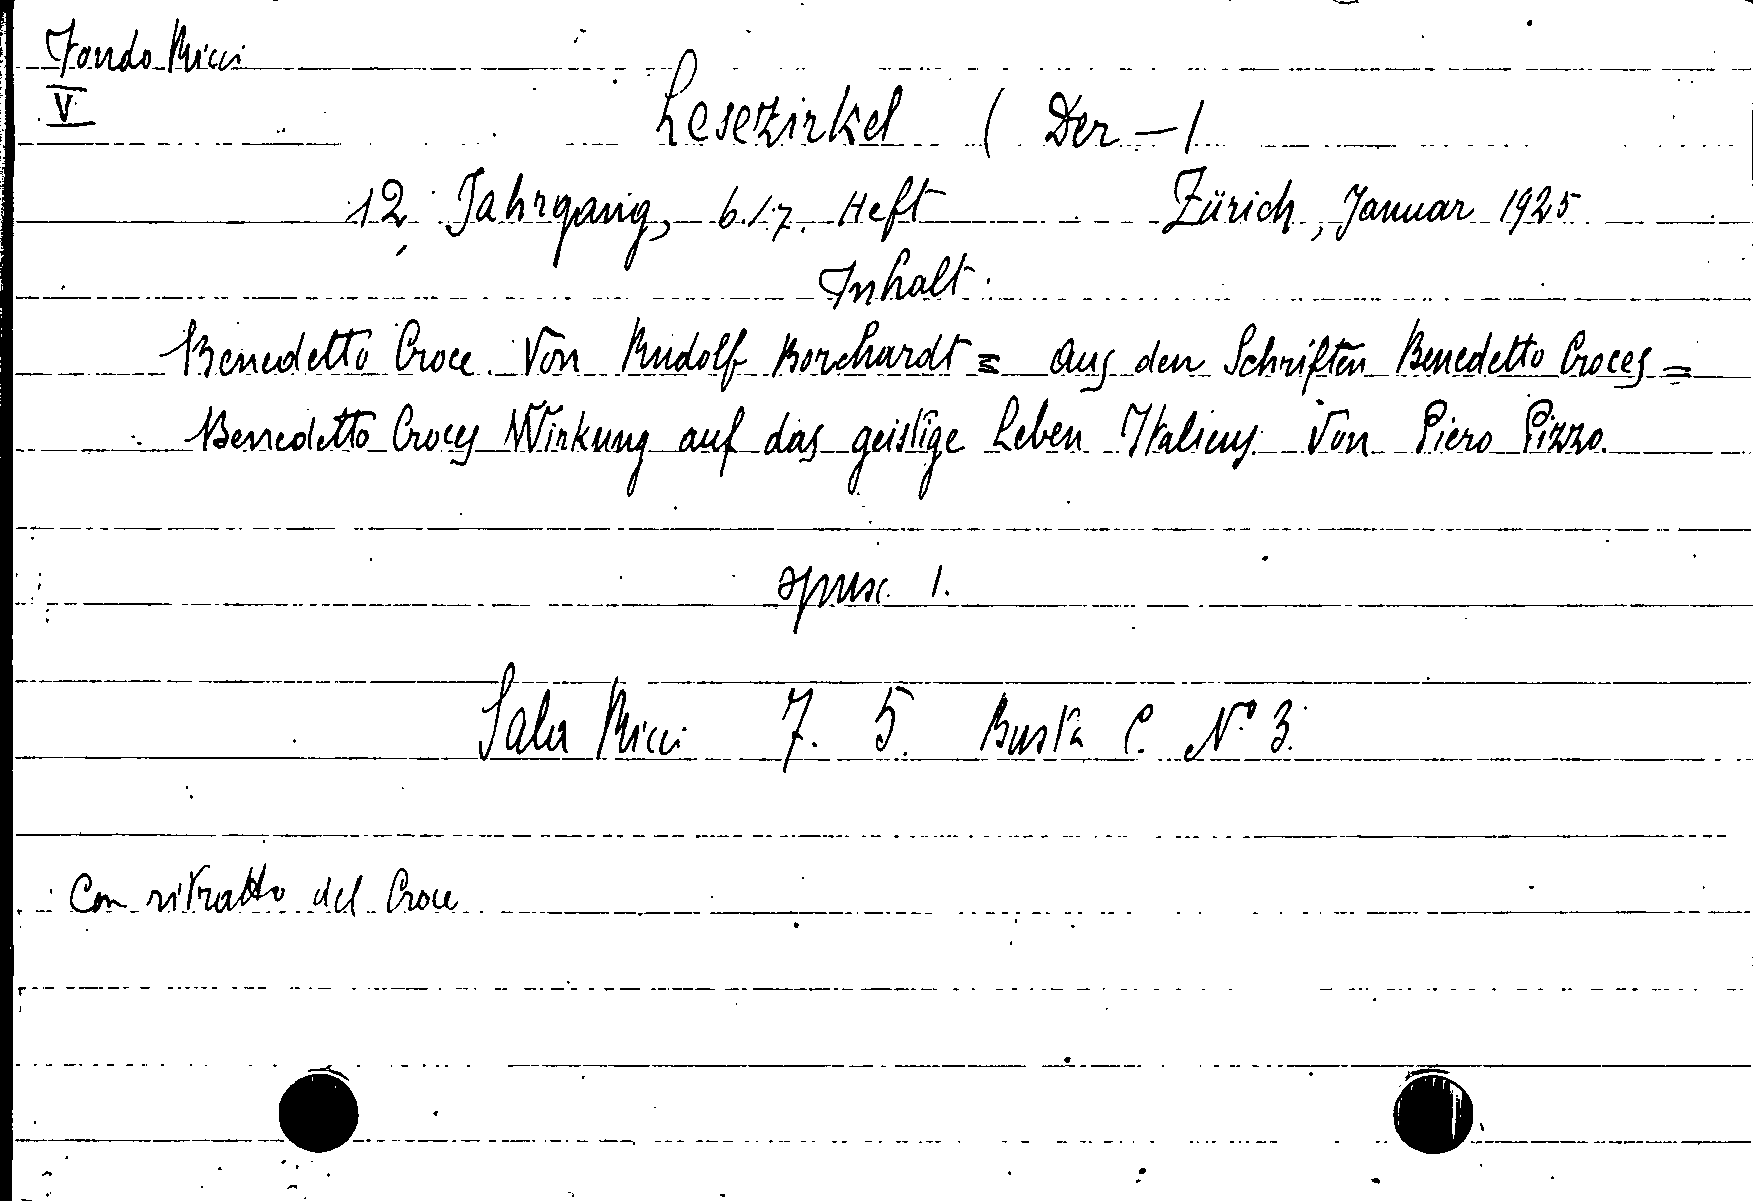 Fondo Ricci
V
Lesezirkel ( Der - )
12. Jahrgang, 6./7. Heft Zürich, Januar 1925
Inhalt:
Benedetto Croce. Von Rudolf Borchardt = Aus den Schriften Benedetto Croces =
Benedetto Croces Wirkung auf das geistige Leben Italiens. Von Piero Pizzo.
opusc. 1.
Sala Ricci 7. 5. Busta C. N° 3.
Con ritratto del Croce